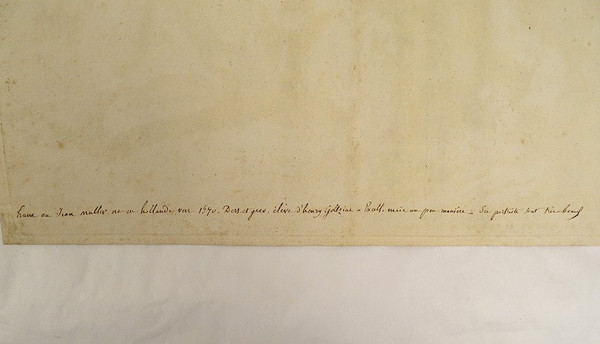 hans ou Jean muller né en hollande vers 1570. Dess. et grav. élève d'henry goltzius - Excell. mais un peu manière - Ses portraits sont très beaux